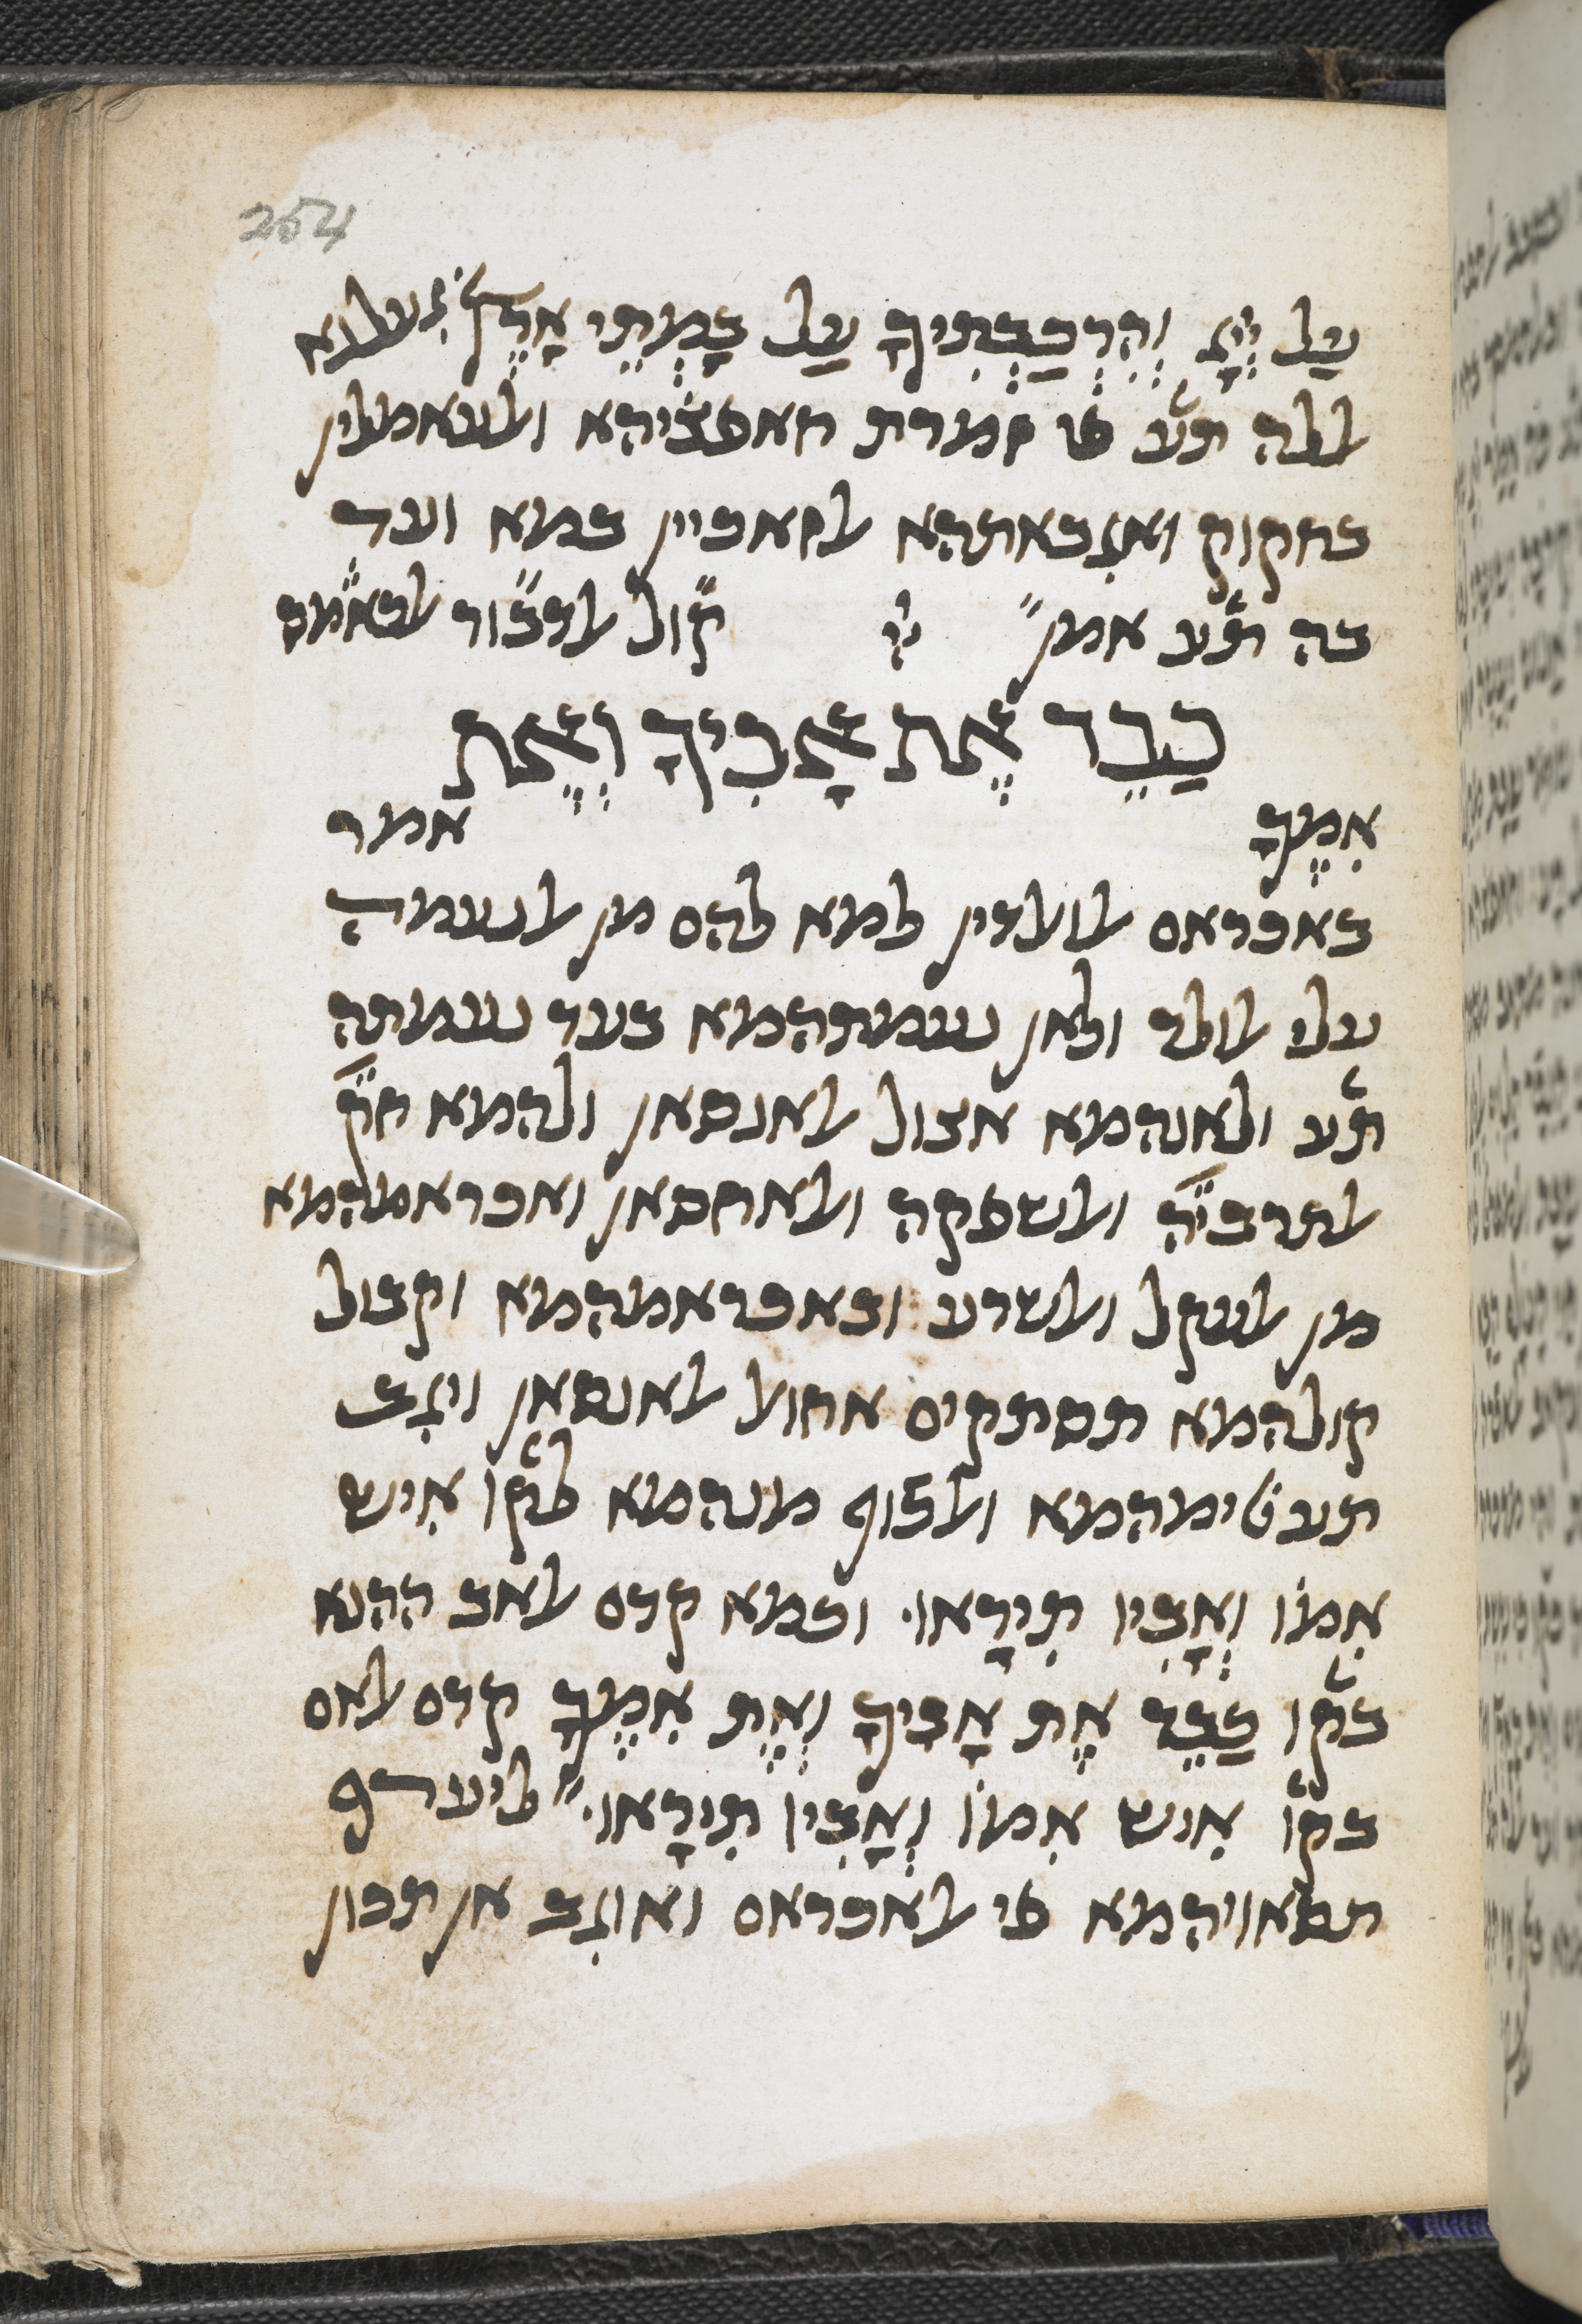 254
עַל יְיָ וְהִרְכַּבְתִּיךָ עַל בָּמֳתֵי אָרֶץ׃ געלנא
אללה תע׳ פי זמרת חאפצ̇יהא ואלעאמלין
בחקוק ואג̇באתהא אלזאכיין במא ועד
בה תע׳ אמן״ קו̈ל אלדבו̈ר אלכ̇אמס
כַבֵּד אֶת אָבִיךָ וְאֶת
אִמֶּךָ אמר
באכראם אלואלדין למא להם מן אלנעמה
עלי אלולד ולאן נעמתהמא בעד נעמתה
תע׳ ולאנהמא אצול אלאנסאן ולהמא חק
אלתרביה̈ ואלשפקה ואלאחסאן ואכראמהמא
מן אלעקל ואלשרע ובאכראמהמא וקבול
קולהמא תסתקים אחואל אלאנסאן ויג̇ב
תעט̇ימהמא ואלכ̇וף מנהמא לק̇ו אִיש
אִמּוֹ וְאָבִיו תִּירָאוּ. וכמא קדם אלאב ההנא
בק̇ו כַּבֵּד אֶת אָבִיךָ וְאֶת אִמֶּךָ קדם אלאם
בק̇ו אִיש אִמּוֹ וְאָבִיו תִּירָאוּ.״ ליערף
תסאויהמא פי אלאכראם ואוג̇ב אן תכון